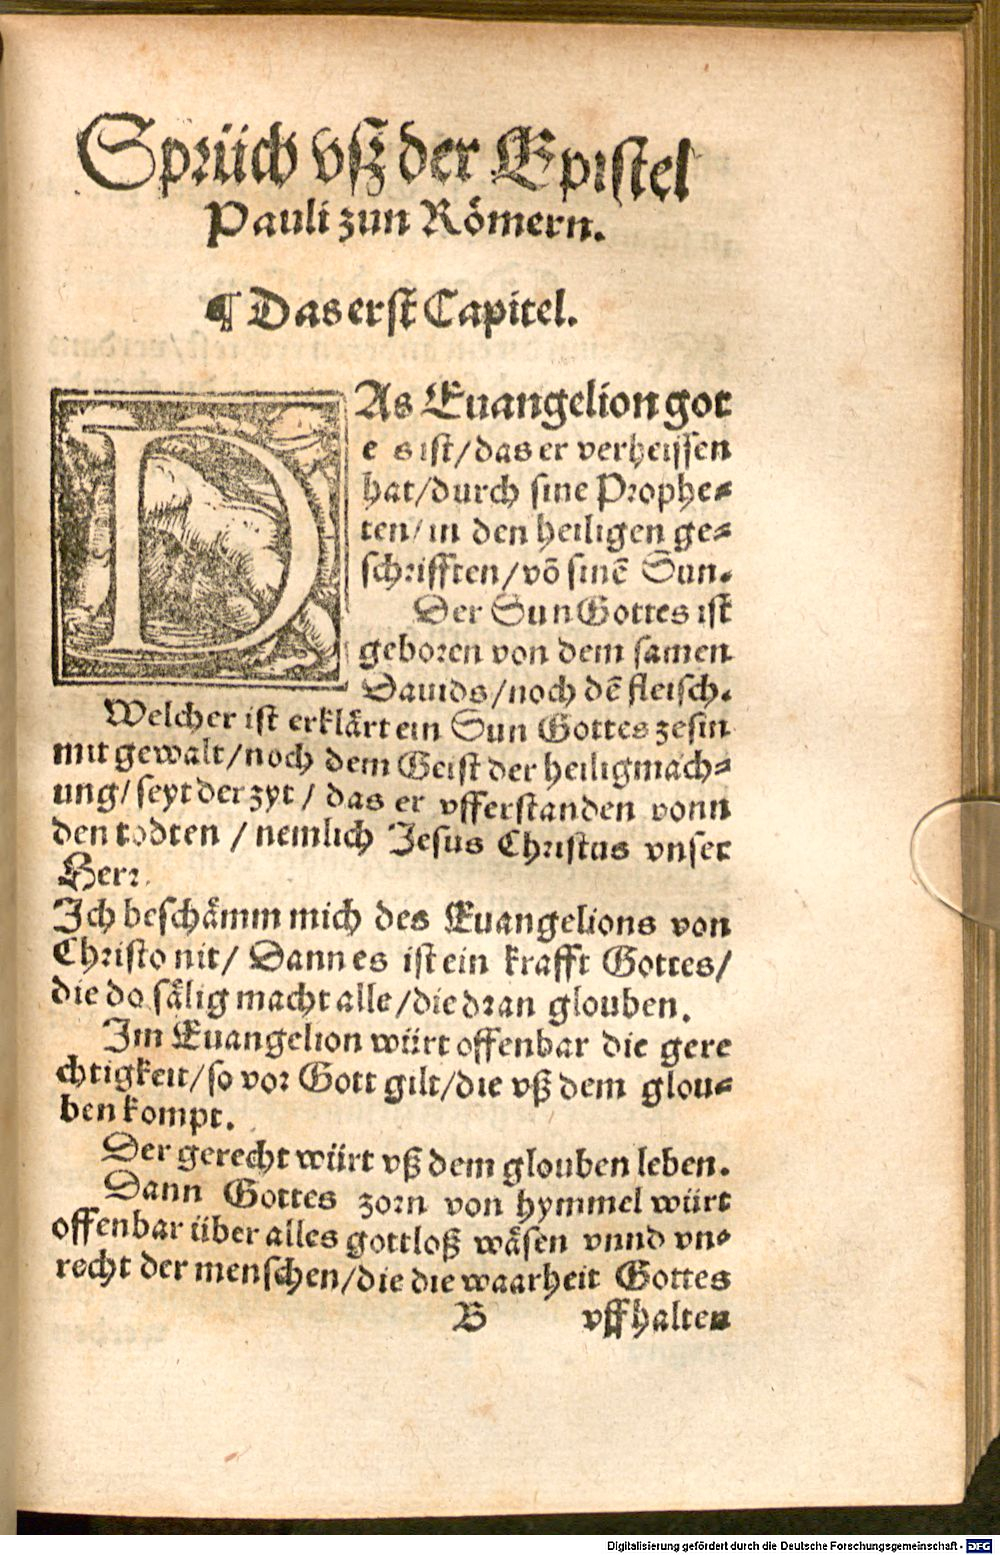 Sprüch vſz der Epiſtel
Pauli zun Römern.
¶ Das erſt Capitel.
DAs Euangelion got
es iſt/das er verheiſſen
hat/durch ſine Prophe⸗
ten/in den heiligen ge⸗
ſchrifften/võ ſinẽ Sun.
Der Sun Gottes iſt
geboren von dem ſamen
Dauids/noch dẽ fleiſch.
Welcher iſt erklärt ein Sun Gottes zeſin
mit gewalt/noch dem Geiſt der heiligmach⸗
ung/ſeyt der zyt/ das er vfferſtanden vonn
den todten / nemlich Jeſus Chriſtus vnſer
Herr.
Ich beſchämm mich des Euangelions von
Chriſto nit/ Dann es iſt ein krafft Gottes/
die do ſälig macht alle/die dran glouben.
Im Euangelion würt offenbar die gere
chtigkeit/ſo vor Gott gilt/die vß dem glou⸗
ben kompt.
Der gerecht würt vß dem glouben leben.
Dann Gottes zorn von hymmel würt
offenbar über alles gottloß wäſen vnnd vn⸗
recht der menſchen/die die waarheit Gottes
B vffhalten
Digitalisierung gefördert durch die Deutsche Forschungsgemeinschaft - DFG